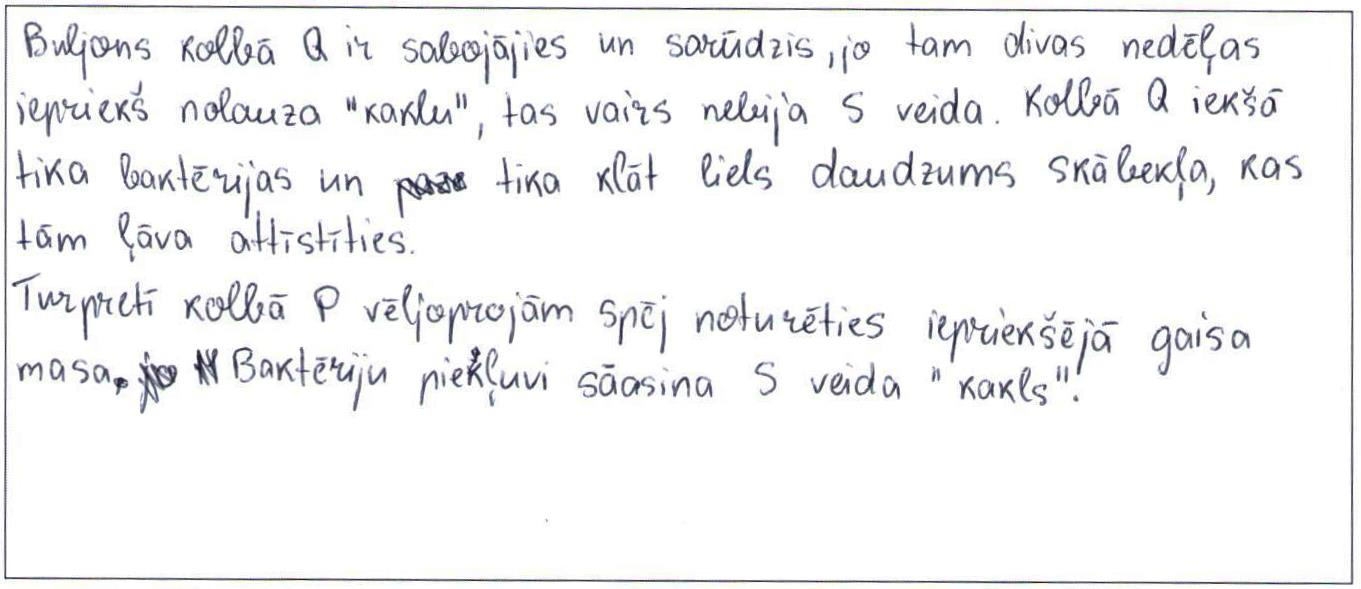 Buljons kolbā Q ir sabojājies un sarūdzis, jo tam divas nedēļas
iepriekš nolauza "kaklu", tas vairs nebija S veida. Kolbā Q iekšā
tika baktērijas un tika klāt liels daudzums skābekļa, kas
tām ļāva attīstīties.
Turpretī kolbā P vēljoprojām spēj noturēties iepriekšējā gaisa
masa. Baktēriju piekļuvi sāasina S veida "kakls".